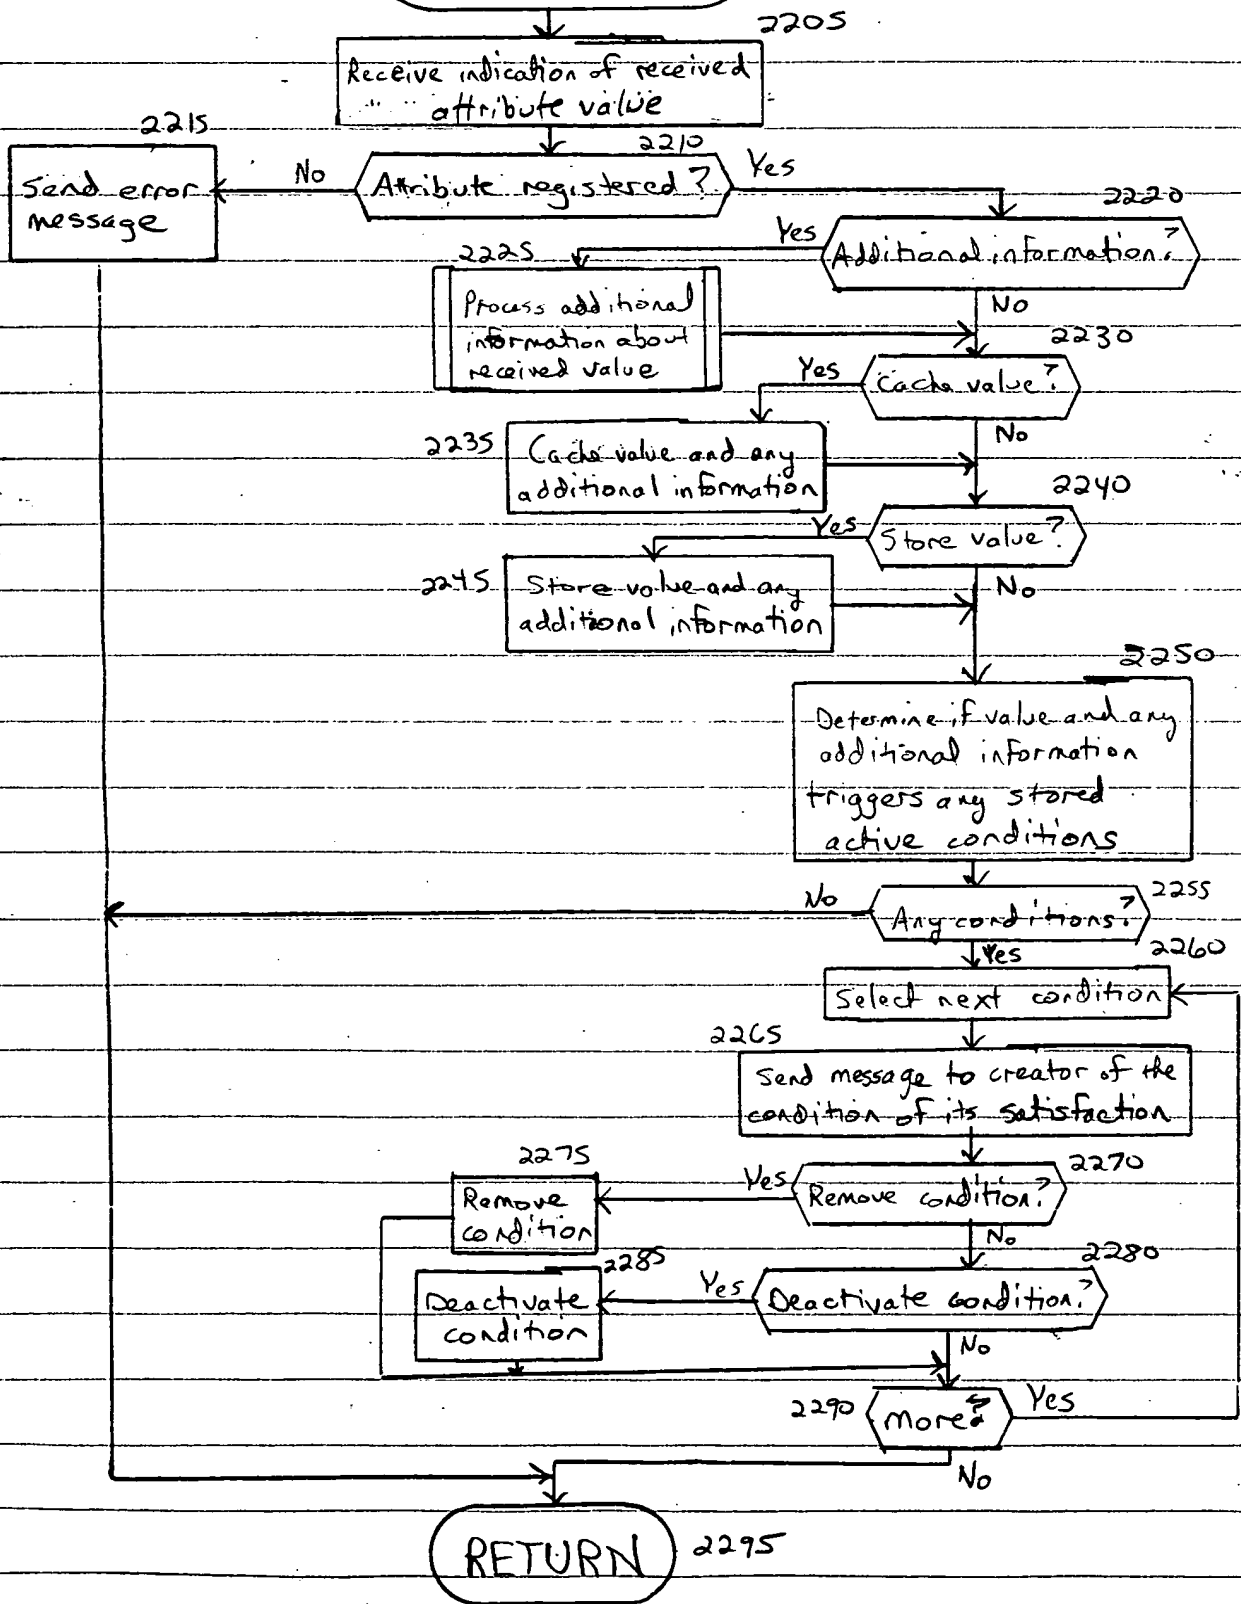 2205
Receive indication of received
attribute value
2215
2210
Send error
message
No
Attribute registered?
Yes
2220
Yes
Additional information?
2225
Process additional
information about
received value
No
2230
Yes
Cache value?
2235
Cache value and any
additional information
No
2240
Yes
Store value?
2245
Store value and any
additional information
No
2250
Determine if value and any
additional information
triggers any stored
active conditions
2255
No
Any conditions?
Yes
2260
Select next condition
2265
Send message to creator of the
condition of its satisfaction
2275
2270
Remove
condition
Yes
Remove condition?
No
2285
2280
Deactivate
condition
Yes
Deactivate condition?
No
2290
more?
Yes
No
RETURN
2295